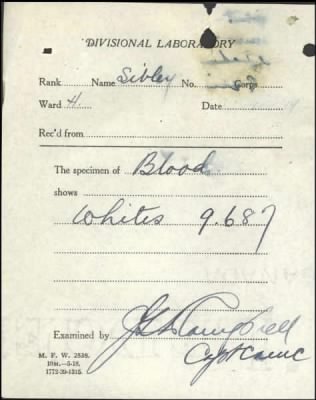 DIVISIONAL LABORATORY
Rank Name Sibley No. Corps
Ward H. Date
Rec'd from
The specimen of Blood
shows
Whites 9.687
Examined by Campbell
Capt CAMC
M. F. W. 2538.
10M.—5-18.
1772-39-1315.